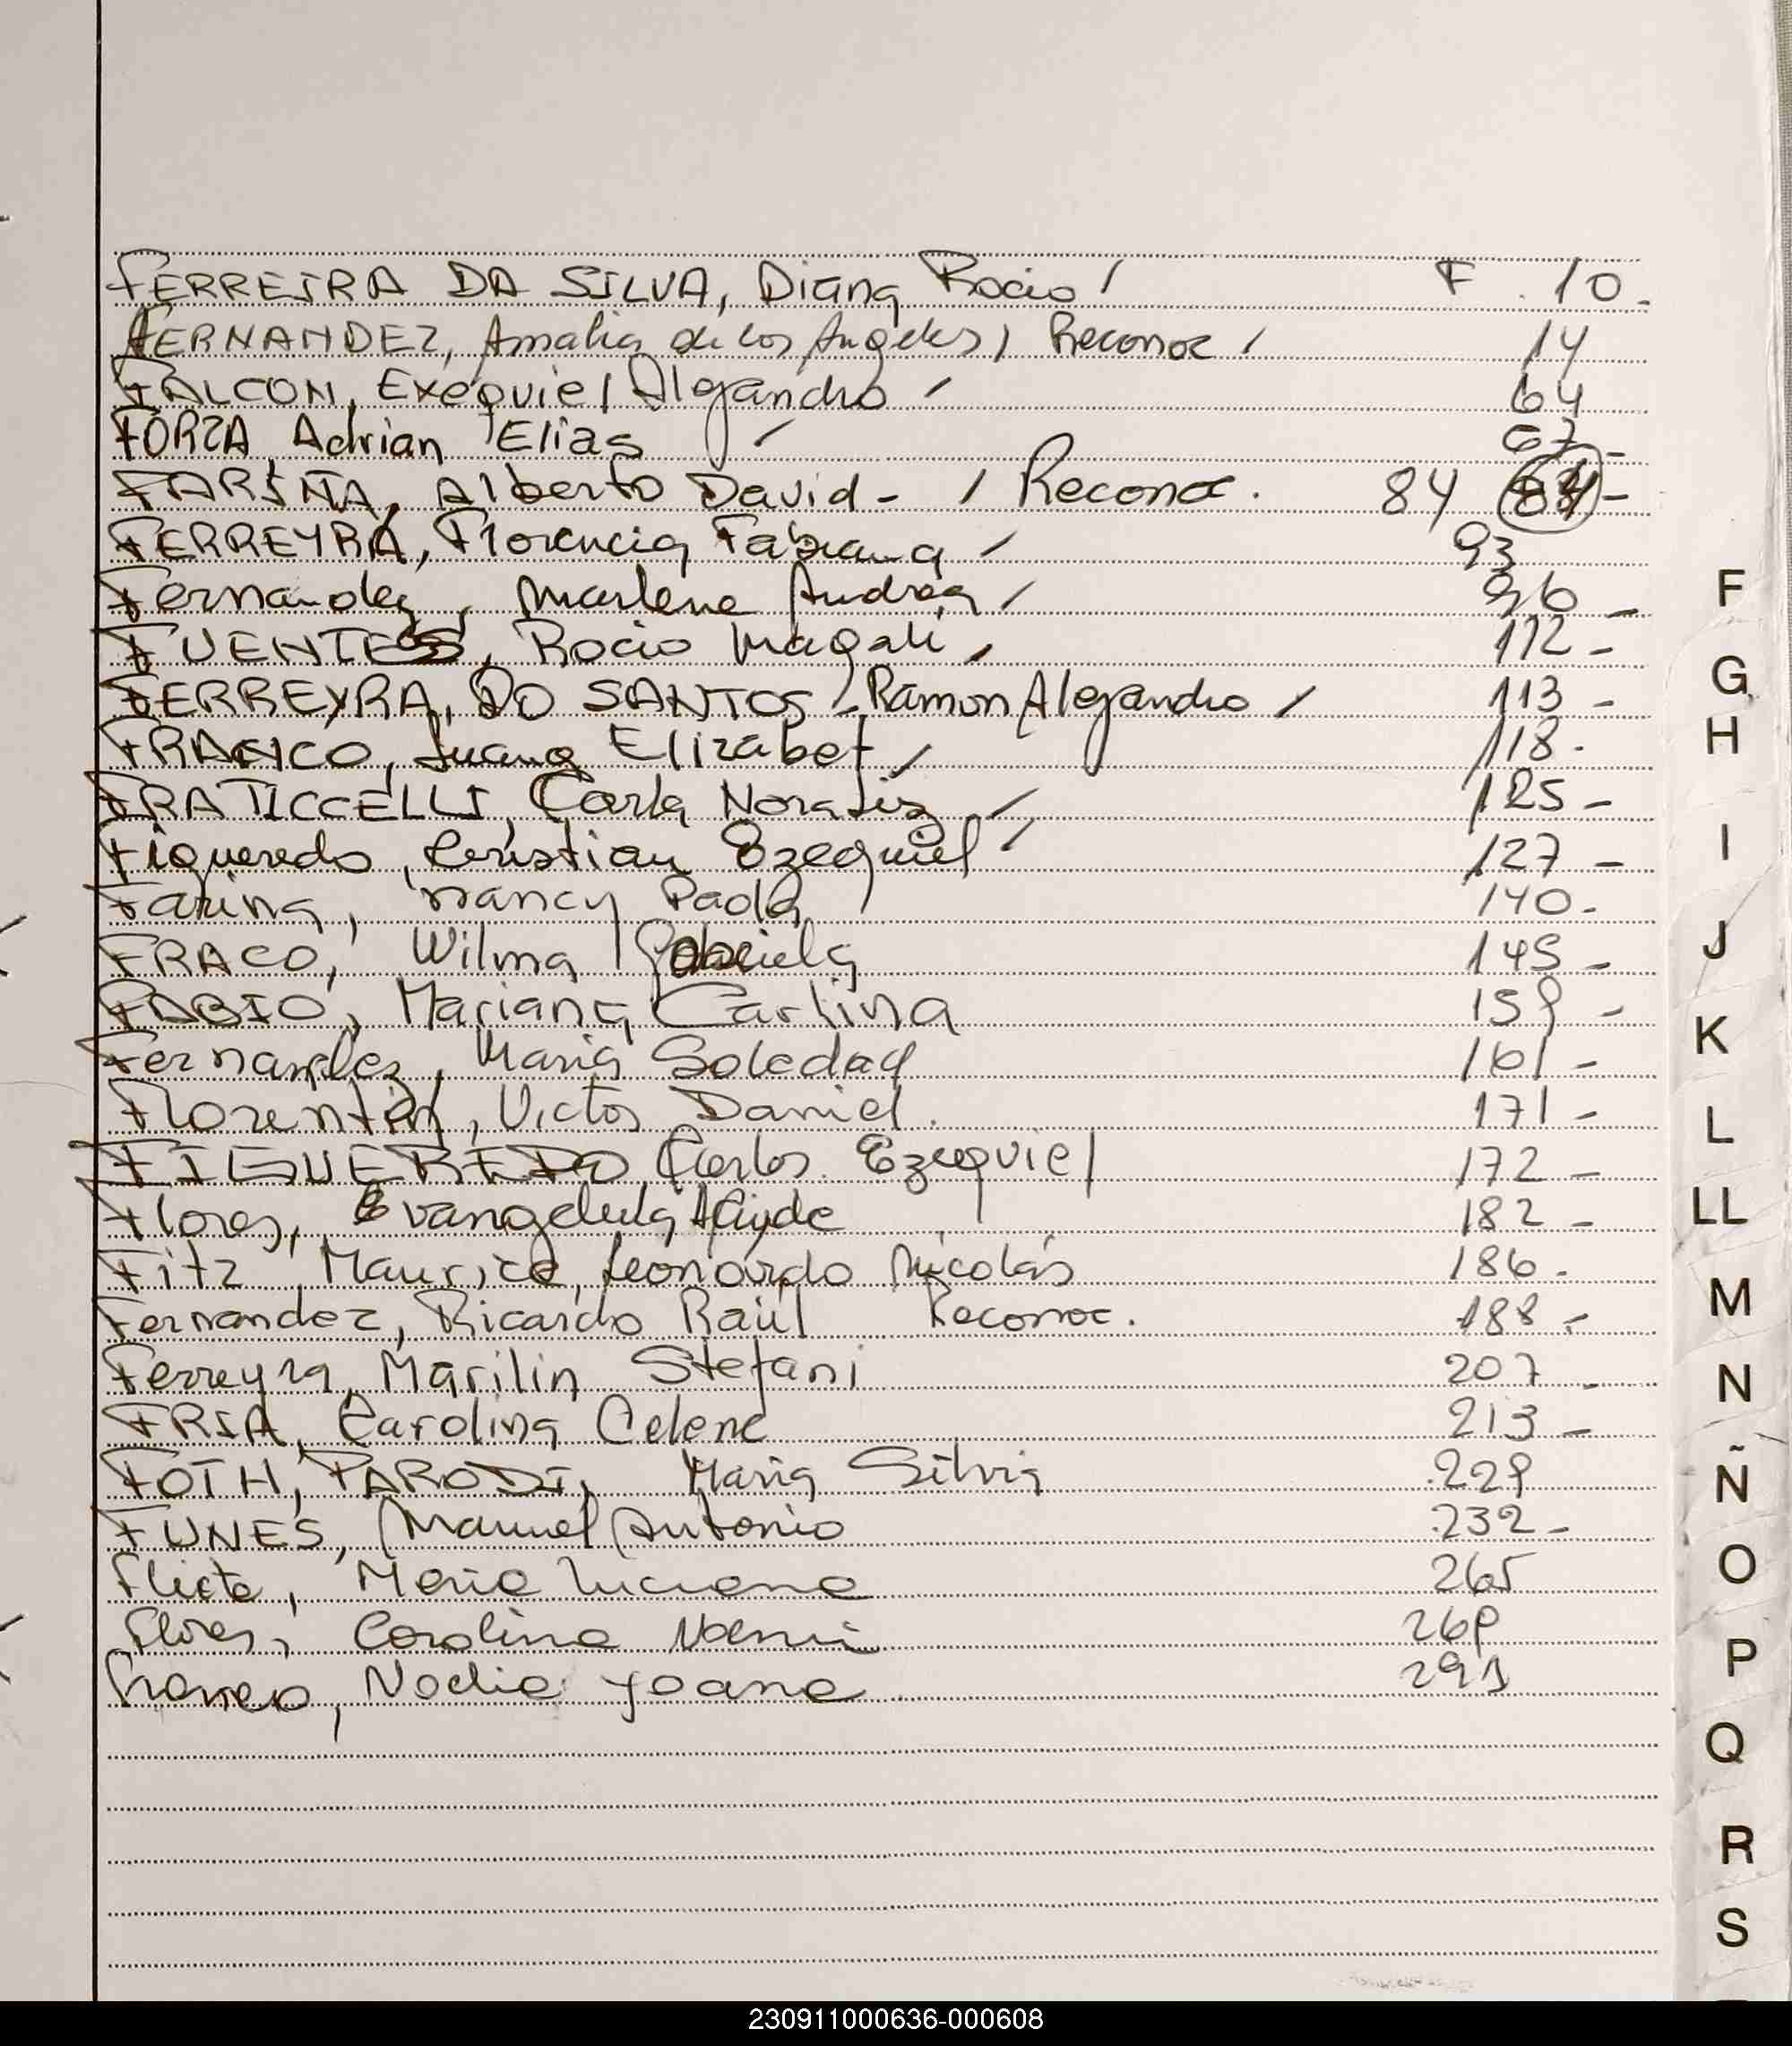 FERREIRA DA SILVA, Diana Rocio / F . 10 -
FERNANDEZ, Amalia de los Angeles, Reconoc / 14
FALCON, Exequiel Alejandro / 64
FORZA Adrian Elias / 67 -
FARIÑA, Alberto David - / Reconoc. 84 -
FERREYRA, Florencia Fabiana / 93
Fernandez, Marlene Andrea / 96 -
FUENTES, Rocio Magali / 112 -
FERREYRA, DO SANTOS, Ramon Alejandro / 113 -
FRANCO, Juana Elizabet / 118 -
FRATICCELLI, Carla Noraliz / 125 -
Figueredo, Cristian Ezequiel / 127 -
Farina, Nancy Paola 140 -
FRACO, Wilma Gabriela 145 -
FABIO, Mariana Carlina 159 -
Fernandez, Maria Soledad 161 -
Florentin, Victor Daniel. 171 -
FIGUEREDO Carlos Ezequiel 172 -
Flores, Evangelina 182 -
Fitz Maurice, Leonardo Nicolás 186 -
Fernandez, Ricardo Raúl Reconoc. 188 -
Ferreyra, Marilin Stefani 207 -
FRIA, Carolina Celene 213 -
FOTH, PARODI, Maria Silvia 229
FUNES, Manuel Antonio 232 -
Maria Luciana 265
Flores, Carolina Noemi 269
Franco, Nadia Yoana 291
F
G
H
I
J
K
L
LL
M
N
Ñ
O
P
Q
R
S
230911000636-000608